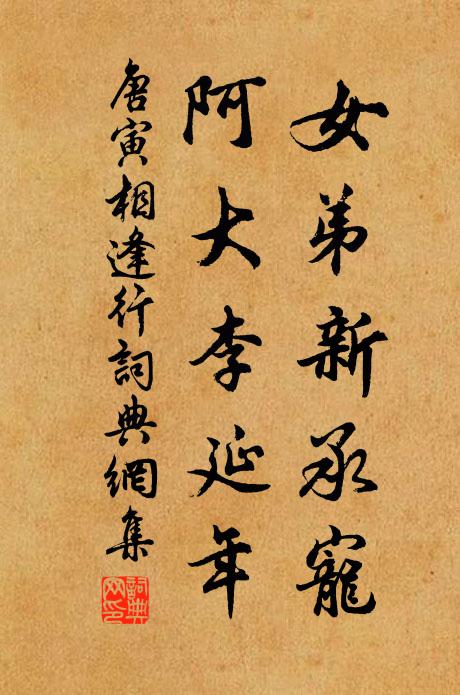 女弟新承寵
阿大李延年
唐寅相逢行詞典網集
詞典網印